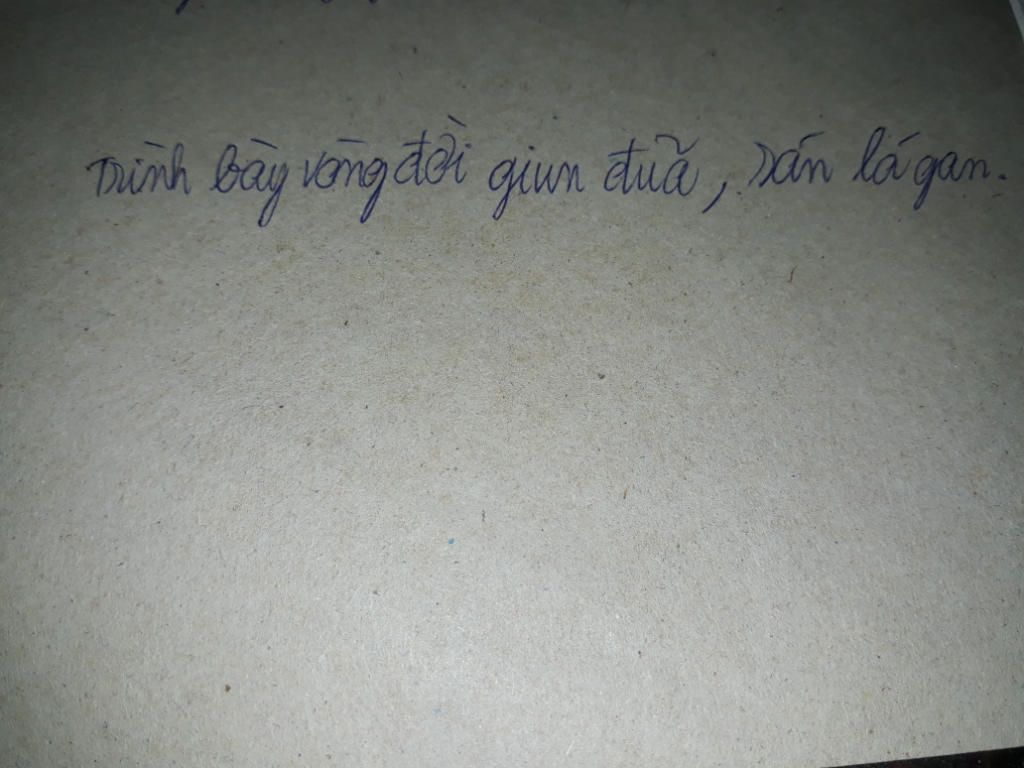 Trình bày vòng đời giun đũa, sán lá gan.